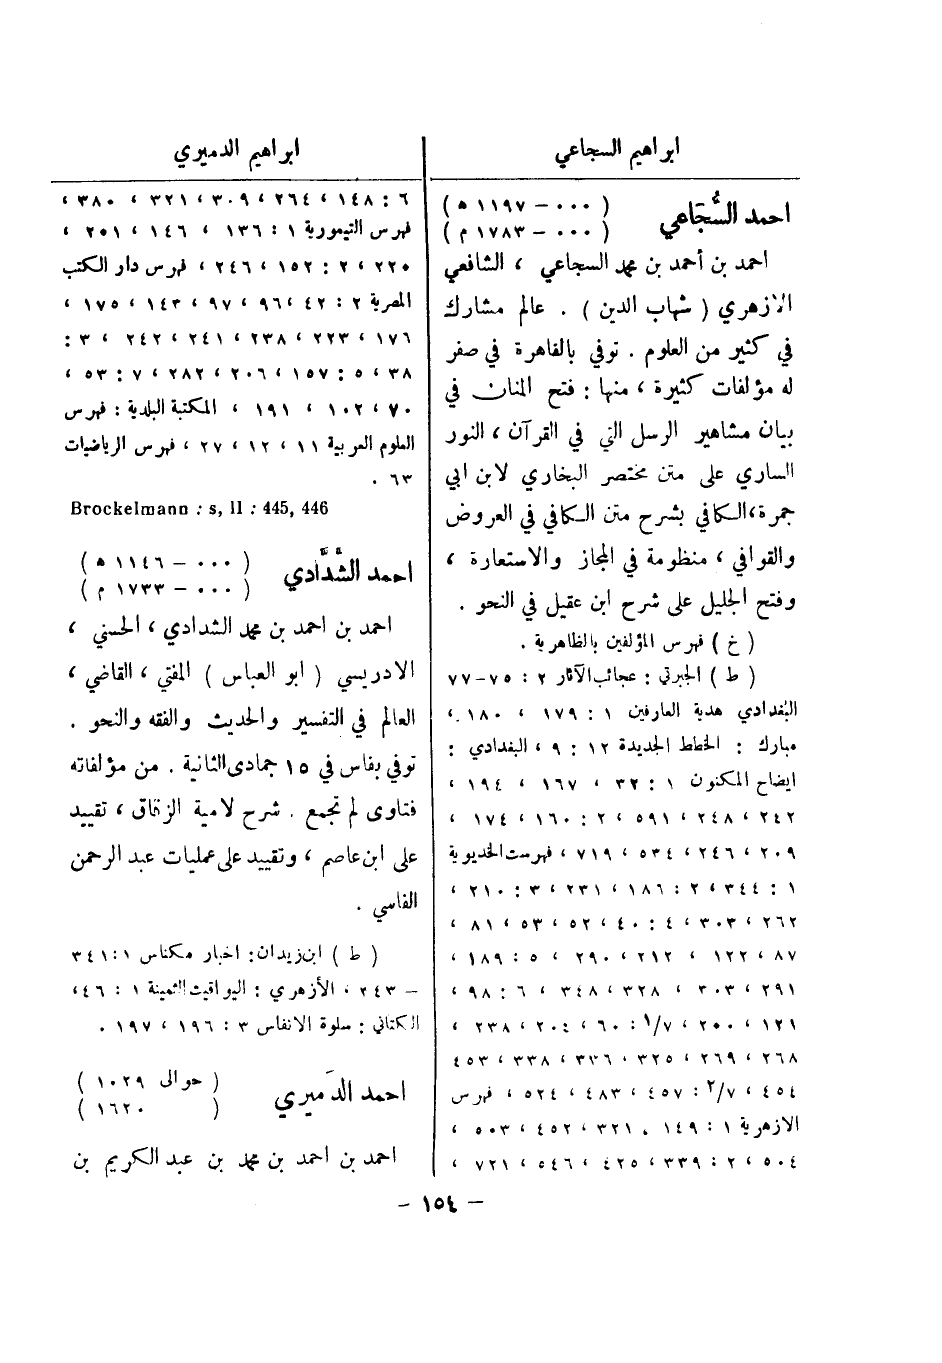 ابراهيم السجاعي
احمد السُّجَاعي ( ٠٠٠ – ١١٩٧ ه )
( ٠٠٠ – ١٧٨٣ م )
احمد بن أحمد بن محمد السجاعي ، الشافعي
الازهري ( شهاب الدين ) . عالم مشارك
في كثير من العلوم . توفي بالقاهرة في صفر
له مؤلفات كثيرة ، منها : فتح المنان في
بيان مشاهير الرسل التي في القرآن ، النور
الساري على متن مختصر البخاري لابن ابي
جمرة ، الكافي بشرح متن الكافي في العروض
والقوافي ، منظومة في المجاز والاستعارة ،
وفتح الجليل على شرح ابن عقيل في النحو .
( خ ) فهرس المؤلفين بالظاهرية .
( ط ) الجبرتي : عجائب الآثار ٢ : ٧٥-٧٧
البغدادي هدية العارفين ١ : ١٧٩ ، ١٨٠ ،
مبارك : الخطط الجديدة ١٢ : ٩ ، البغدادي :
ايضاح المكنون ١ : ٣٢ ، ١٦٧ ، ١٩٤ ،
٢٤٢ ، ٢٤٨ ، ٥٩١ ، ٢ : ١٦٠ ، ١٧٤ ،
٢٠٩ ، ٢٤٦ ، ٥٣٤ ، ٧١٩ ، فهرست الخديوية
١ : ٣٤٤ ، ٢ : ١٨٦ ، ٢٣١ ، ٣ : ٢١٠ ،
٢٦٢ ، ٣٠٣ ، ٤ : ٤٠ ، ٥٢ ، ٥٣ ، ٨١ ،
٨٧ ، ١٢٢ ، ٢١٢ ، ٢٩٠ ، ٥ : ١٨٩ ،
٢٩١ ، ٣٠٣ ، ٣٢٨ ، ٣٤٨ ، ٦ : ٩٨ ،
١٢١ ، ٢٠٠ ، ٧/١ : ٦٠ ، ٢٠٤ ، ٢٣٨ ،
٢٦٨ ، ٢٦٩ ، ٣٢٥ ، ٣٣٦ ، ٣٣٨ ، ٤٥٣
٤٥٤ ، ٧/٢ : ٤٥٧ ، ٤٨٣ ، ٥٢٤ ، فهرس
الازهرية ١ : ١٤٩ ، ٣٢١ ، ٤٥٢ ، ٥٠٣ ،
٥٠٤ ، ٢ : ٣٣٩ ، ٤٢٥ ، ٥٤٦ ، ٧٢١ ،
ابراهيم الدميري
٦ : ١٤٨ ، ٢٦٤ ، ٣٠٩ ، ٣٢١ ، ٣٨٠ ،
فهرس التيمورية ١ : ١٣٦ ، ١٤٦ ، ٢٥١ ،
٢٢٠ ، ٢ : ١٥٢ ، ٢٤٦ ، فهرس دار الكتب
المصرية ٢ : ٤٢ ، ٩٦ ، ٩٧ ، ١٤٣ ، ١٧٥ ،
١٧٦ ، ٢٢٣ ، ٢٣٨ ، ٢٤١ ، ٢٤٢ ، ٣ :
٣٨ ، ٥ : ١٥٧ ، ٢٠٦ ، ٢٨٢ ، ٧ : ٥٣ ،
٧٠ ، ١٠٢ ، ١٩١ ، المكتبة البلدية : فهرس
العلوم العربية ١١ ، ١٢ ، ٢٧ ، فهرس الرياضيات
٦٣ .
Brockelmann : s, II : 445, 446
احمد الشَّدَّادي ( ٠٠٠ – ١١٤٦ ه )
( ٠٠٠ – ١٧٣٣ م )
احمد بن احمد بن محمد الشدادي ، الحسني ،
الادريسي ( ابو العباس ) المفتي ، القاضي ،
العالم في التفسير والحديث والفقه والنحو .
توفي بفاس في ١٥ جمادى الثانية . من مؤلفاته
فتاوى لم تجمع . شرح لامية الزقاق ، تقييد
على ابن عاصم ، وتقييد على عمليات عبد الرحمن
الفاسي .
( ط ) ابن زيدان : اخبار مكناس ١ : ٣٤١
– ٣٤٣ ، الأزهري : اليواقيت الثمينة ١ : ٤٦ ،
الكتاني : سلوة الانفاس ٣ : ١٩٦ ، ١٩٧ .
احمد الدَميري ( حوالى ١٠٢٩ )
( ١٦٢٠ )
احمد بن احمد بن محمد بن عبد الكريم بن
– ١٥٤ –